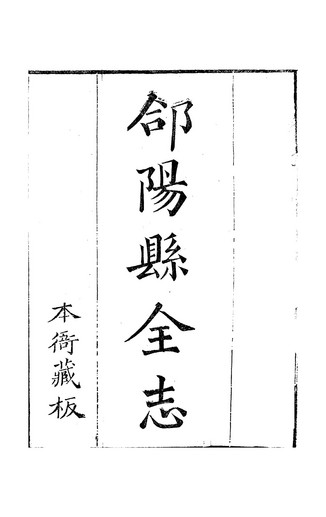 郃陽縣全志
本衙藏板